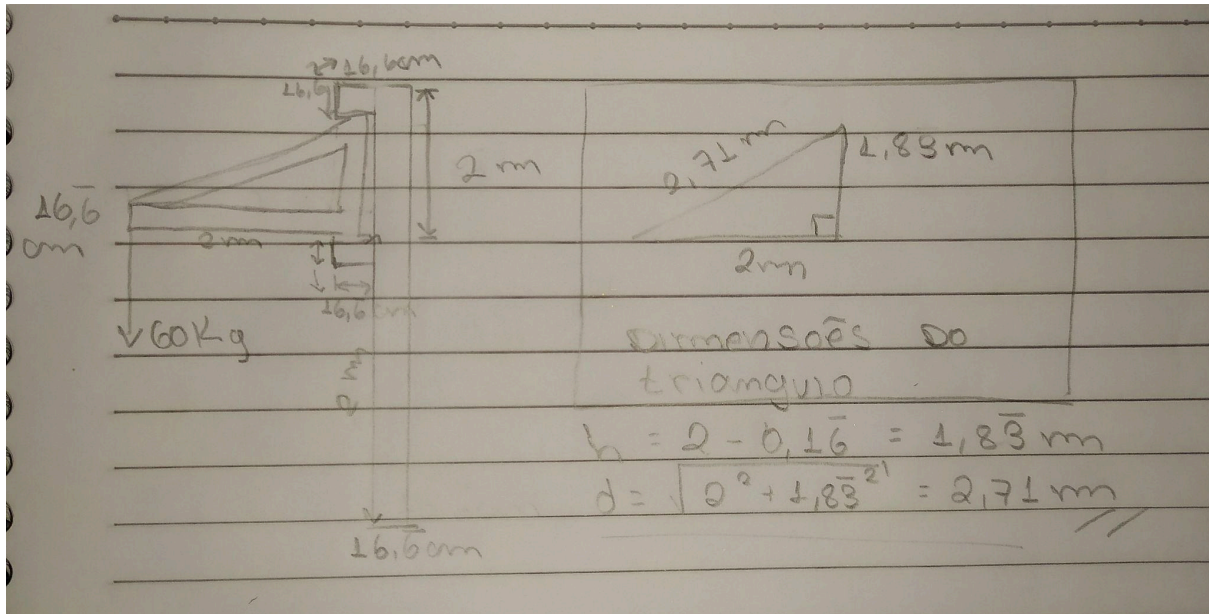 16,6cm
16,6
2 m
16,6̅
cm
2m
16,6̅ cm
60Kg
2 m
16,6̅cm
2,71 m
1,83 m
2m
Dimensões Do
triangulo
h = 2 - 0,16̅ = 1,83̅ m
d = √2² + 1,83̅² = 2,71 m